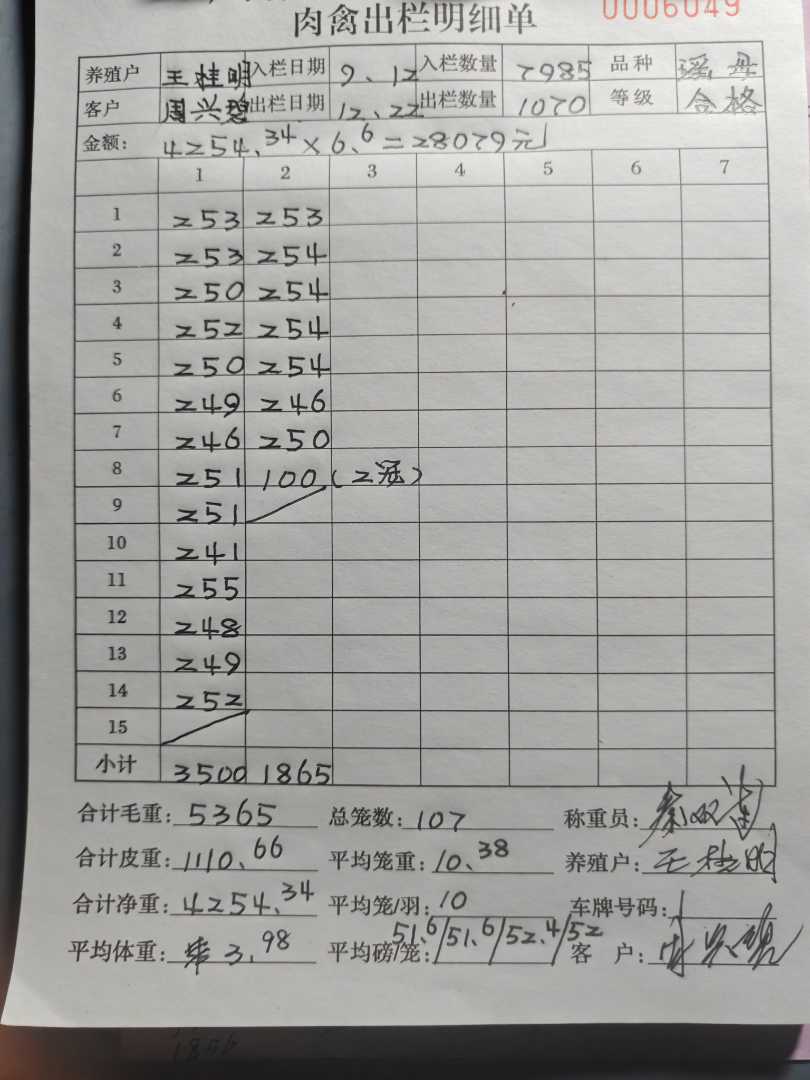 0006049
肉禽出栏明细单
养殖户 王桂明 入栏日期 9、12 入栏数量 7985 品种 瑶母
客户 周兴碧 出栏日期 12、22 出栏数量 1070 等级 合格
金额: 4254.34×6.6=28079元
1 2 3 4 5 6 7
1 253 253
2 253 254
3 250 254
4 252 254
5 250 254
6 249 246
7 246 250
8 251 100(2冠)
9 251
10 241
11 255
12 248
13 249
14 252
15
小计 3500 1865
合计毛重: 5365 总笼数: 107 称重员:
合计皮重: 1110.66 平均笼重: 10.38 养殖户: 王桂明
合计净重: 4254.34 平均笼/羽: 10 车牌号码:
平均体重: 3.98 平均磅/笼: 51.6/51.6/52.4/52 客户: